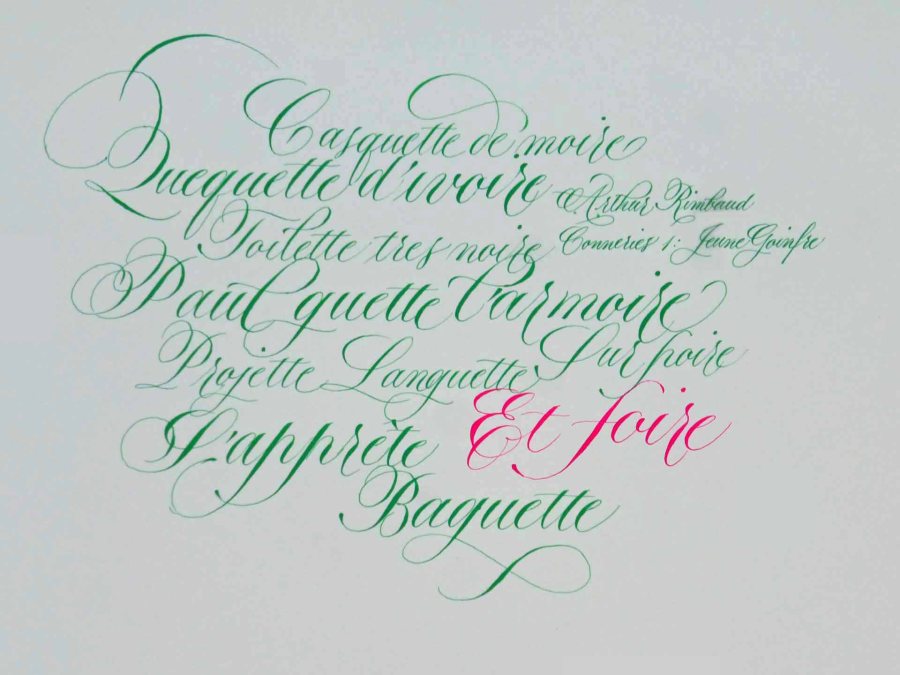 Casquette de moire
Quequette d'ivoire
Arthur Rimbaud
Toilette tres noire
Conneries 1: Jeune Goinfre
Paul guette l'armoire
Projette Languette Sur poire
S'apprète
Et foire
Baguette